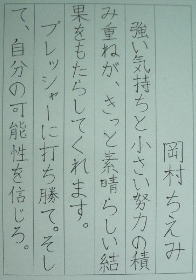 岡村ちえみ
強い気持ちと小さい努力の積
み重ねが、きっと素晴らしい結
果をもたらしてくれます。
プレッシャーに打ち勝て。そし
て、自分の可能性を信じろ。